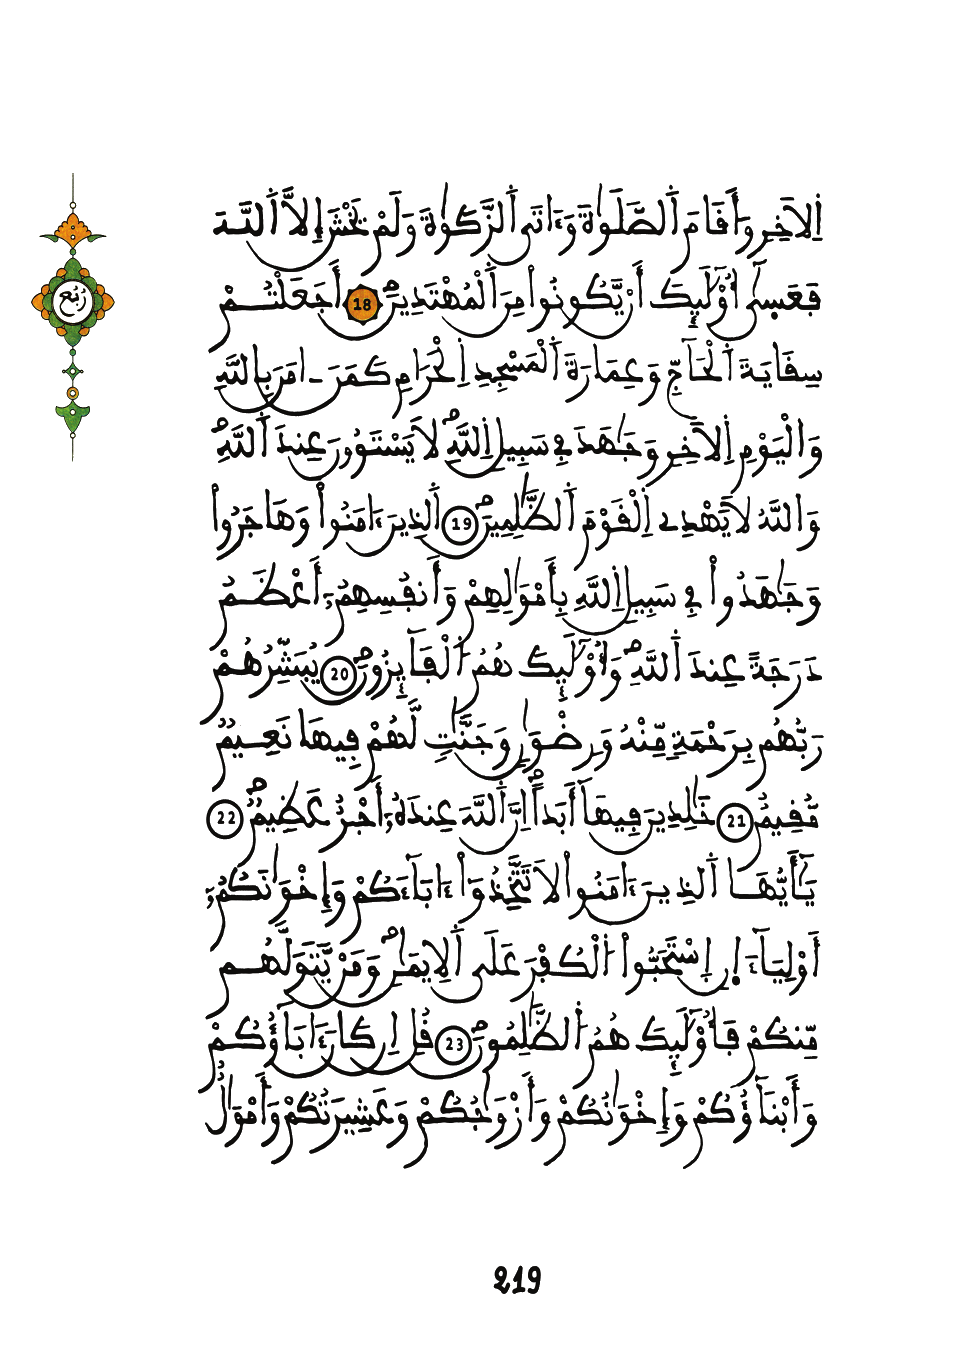 اِ۬لَاخِرِ وَأَقَامَ اَ۬لصَّلَوٰةَ وَءَاتَي اَ۬لزَّكَوٰةَ وَلَمْ يَخْشَ إِلَّا اَ۬للَّهَ
فَعَسٜيٰٓ أُوْلَٰٓئِكَ أَنْ يَّكُونُواْ مِنَ اَ۬لْمُهْتَدِينَۖ 18 أَجَعَلْتُمْ
سِقَايَةَ اَ۬لْحَآجِّ وَعِمَارَةَ اَ۬لْمَسْجِدِ اِ۬لْحَرَامِ كَمَنَ اٰمَنَ بِاللَّهِ
وَالْيَوْمِ اِ۬لَاخِرِ وَجَٰهَدَ فِے سَبِيلِ اِ۬للَّهِۖ لَا يَسْتَوُۥنَ عِندَ اَ۬للَّهِۖ
وَاللَّهُ لَا يَهْدِے اِ۬لْقَوْمَ اَ۬لظَّٰلِمِينَۖ 19 اَ۬لذِينَ ءَامَنُواْ وَهَاجَرُواْ
وَجَٰهَدُواْ فِے سَبِيلِ اِ۬للَّهِ بِأَمْوَٰلِهِمْ وَأَنفُسِهِمُۥٓ أَعْظَمُ
دَرَجَةً عِندَ اَ۬للَّهِۖ وَأُوْلَٰٓئِكَ هُمُ اُ۬لْفَآئِزُونَۖ 20 يُبَشِّرُهُمْ
رَبُّهُم بِرَحْمَةٖ مِّنْهُ وَرِضْوَٰنٖ وَجَنَّٰتٖ لَّهُمْ فِيهَا نَعِيمٞ
مُّقِيمٌ 21 خَٰلِدِينَ فِيهَآ أَبَداًۖ اِنَّ اَ۬للَّهَ عِندَهُۥٓ أَجْرٌ عَظِيمٞۖ 22
يَٰٓأَيُّهَا اَ۬لذِينَ ءَامَنُواْ لَا تَتَّخِذُوٓاْ ءَابَآءَكُمْ وَإِخْوَٰنَكُمُۥٓ
أَوْلِيَآءَ اِ۪نِ اِ۪سْتَحَبُّواْ اُ۬لْكُفْرَ عَلَي اَ۬لِايمَٰنِۖ وَمَنْ يَّتَوَلَّهُم
مِّنكُمْ فَأُوْلَٰٓئِكَ هُمُ اُ۬لظَّٰلِمُونَۖ 23 قُلِ اِن كَانَ ءَابَآؤُكُمْ
وَأَبْنَآؤُكُمْ وَإِخْوَٰنُكُمْ وَأَزْوَٰجُكُمْ وَعَشِيرَتُكُمْ وَأَمْوَٰلٌ
رُبُع
219